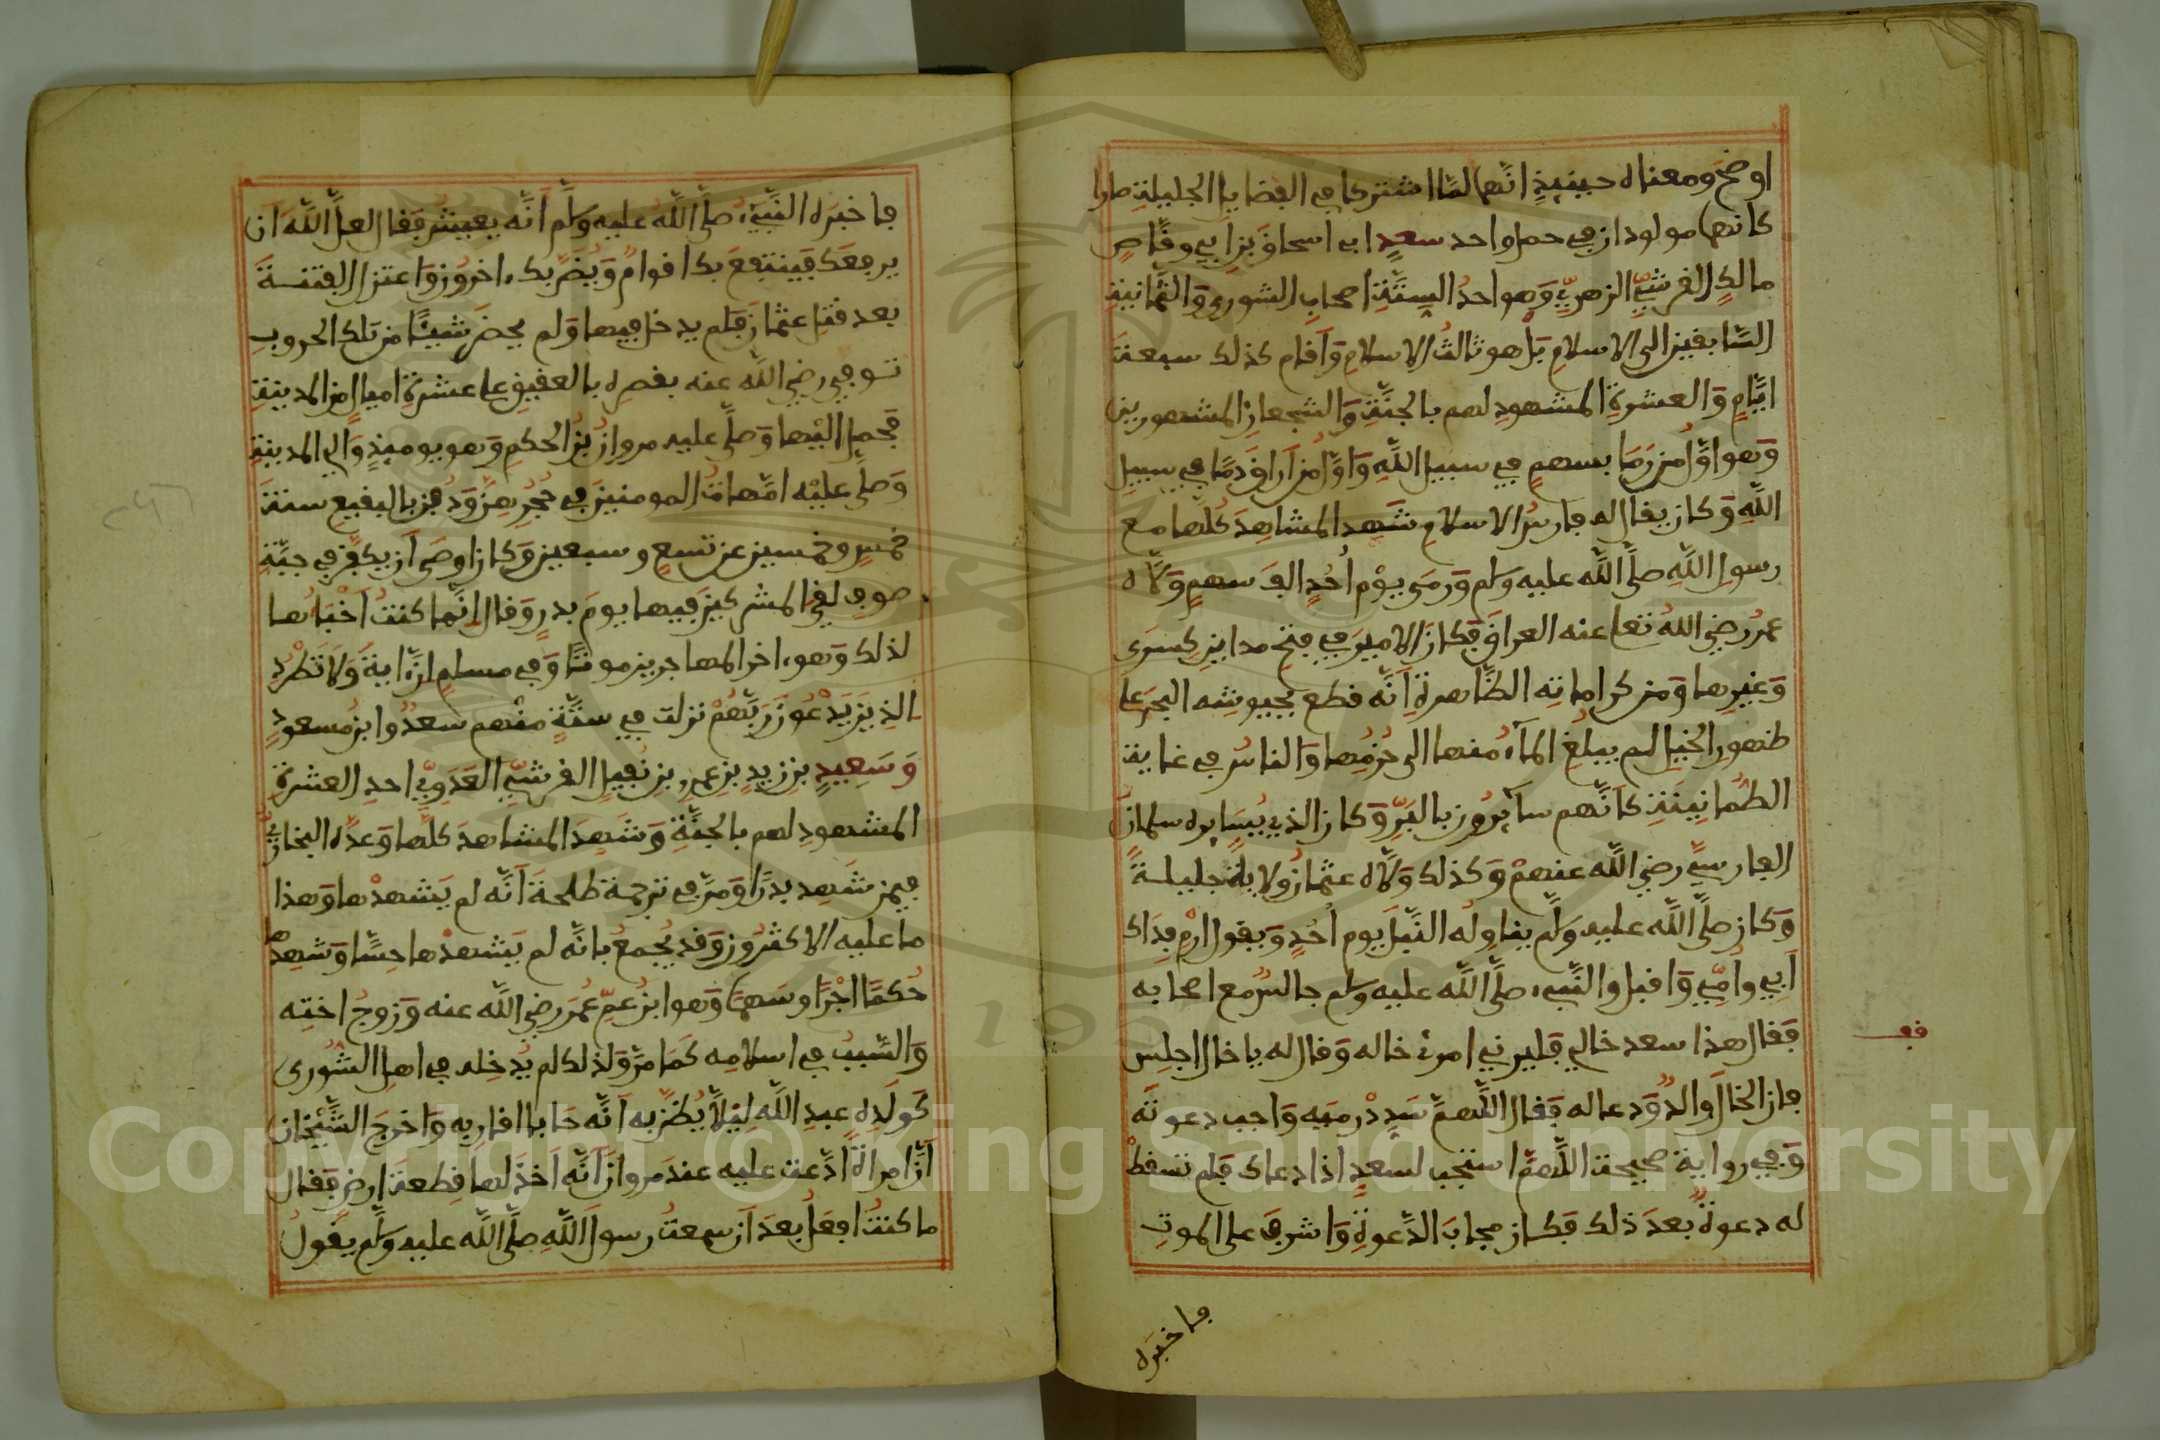 اوضح ومعناه حينيذ انهما لما اشتركا في الفضايل الجليلة صارا
كانهما مولودان في حمل واحد سعد ابي اسحاق بن ابي وقاص
مالك القرشي الزهري وهو احد الستة اصحاب الشورى والثمانية
السابقين الى الاسلام بل هو ثالث الاسلام واقام كذلك سبعة
ايام والعشرة المشهود لهم بالجنة والشجعان المشهورين
وهو اول من رمى بسهم في سبيل الله واول من اراق دما في سبيل
الله وكان يقال له فارس الاسلام شهد المشاهد كلها مع
رسول الله صلى الله عليه وسلم ورمى يوم أحد الف سهم وولاه
عمر رضي الله تعا عنه العراق فكان الامير في فتح مداين كسرى
وغيرها ومن كراماته الظاهرة انه قطع بجيوشه البحر على
ظهور الخيل لم يبلغ الماء منها الى حزمها والناس في غاية
الطمانينة كانهم سايرون بالبر وكان الذي يسايره سلمان
الفارسي رضي الله عنهم وكذلك ولاه عثمان ولاية جليلة
وكان صلى الله عليه وسلم يناوله النبل يوم أحد ويقول ارم فداك
ابي وامي واقبل والنبيء صلى الله عليه وسلم جالس مع اصحابه
فقال هذا سعد خالي فليرني امرؤ خاله وقال له يا خال اجلس
فان الخال والد ودعا له فقال اللهم سدد رميه واجب دعوته
وفي رواية صحيحة اللهم استجب لسعد اذا دعاك فلم تسقط
له دعوة بعد ذلك فكان مجاب الدعوة واشرف على الموت
فاخبره
قف
فاخبره النبيء صلى الله عليه وسلم انه يعيش فقال لعل الله ان
يرفعك فينتفع بك اقوام ويضر بك ءاخرون واعتزل الفتنة
بعد قتل عثمان فلم يدخل فيها ولم يحضر شيئا من تلك الحروب
توفي رضي الله عنه بقصره بالعقيق على عشرة اميال من المدينة
فحمل اليها وصلى عليه مروان بن الحكم وهو يوميذ والي المدينة
وصلى عليه امهات المومنين في حجرهن ودفن بالبقيع سنة
خمس وخمسين عن تسع وسبعين وكان اوصى ان يكفن في جبة
صوف لقي المشركين فيها يوم بدر وقال انما كنت اخباتها
لذلك وهو ءاخر المهاجرين موتا وفي مسلم ان ءاية ولا تطرد
الذين يدعون ربهم نزلت في ستة منهم سعد وابن مسعود
وسعيد بن زيد بن عمرو بن نفيل القرشي العدوي احد العشرة
المشهود لهم بالجنة وشهد المشاهد كلها وعده البخاري
فيمن شهد بدرا ومر في ترجمة طلحة انه لم يشهدها وهذا
ما عليه الاكثرون وقد يجمع بانه لم يشهدها حسا وشهدها
حكما اجرا وسهما وهو ابن عم عمر رضي الله عنه وزوج اخته
والسبب في اسلامه كما مر ولذلك لم يدخله في اهل الشورى
كولده عبد الله ليلا يظن به انه حابا اقاربه واخرج الشيخان
ان امراة ادعت عليه عند مروان انه اخذ لها قطعة ارض فقال
ما كنت افعل بعد ان سمعت رسول الله صلى الله عليه وسلم يقول
Copyright © King Saud University